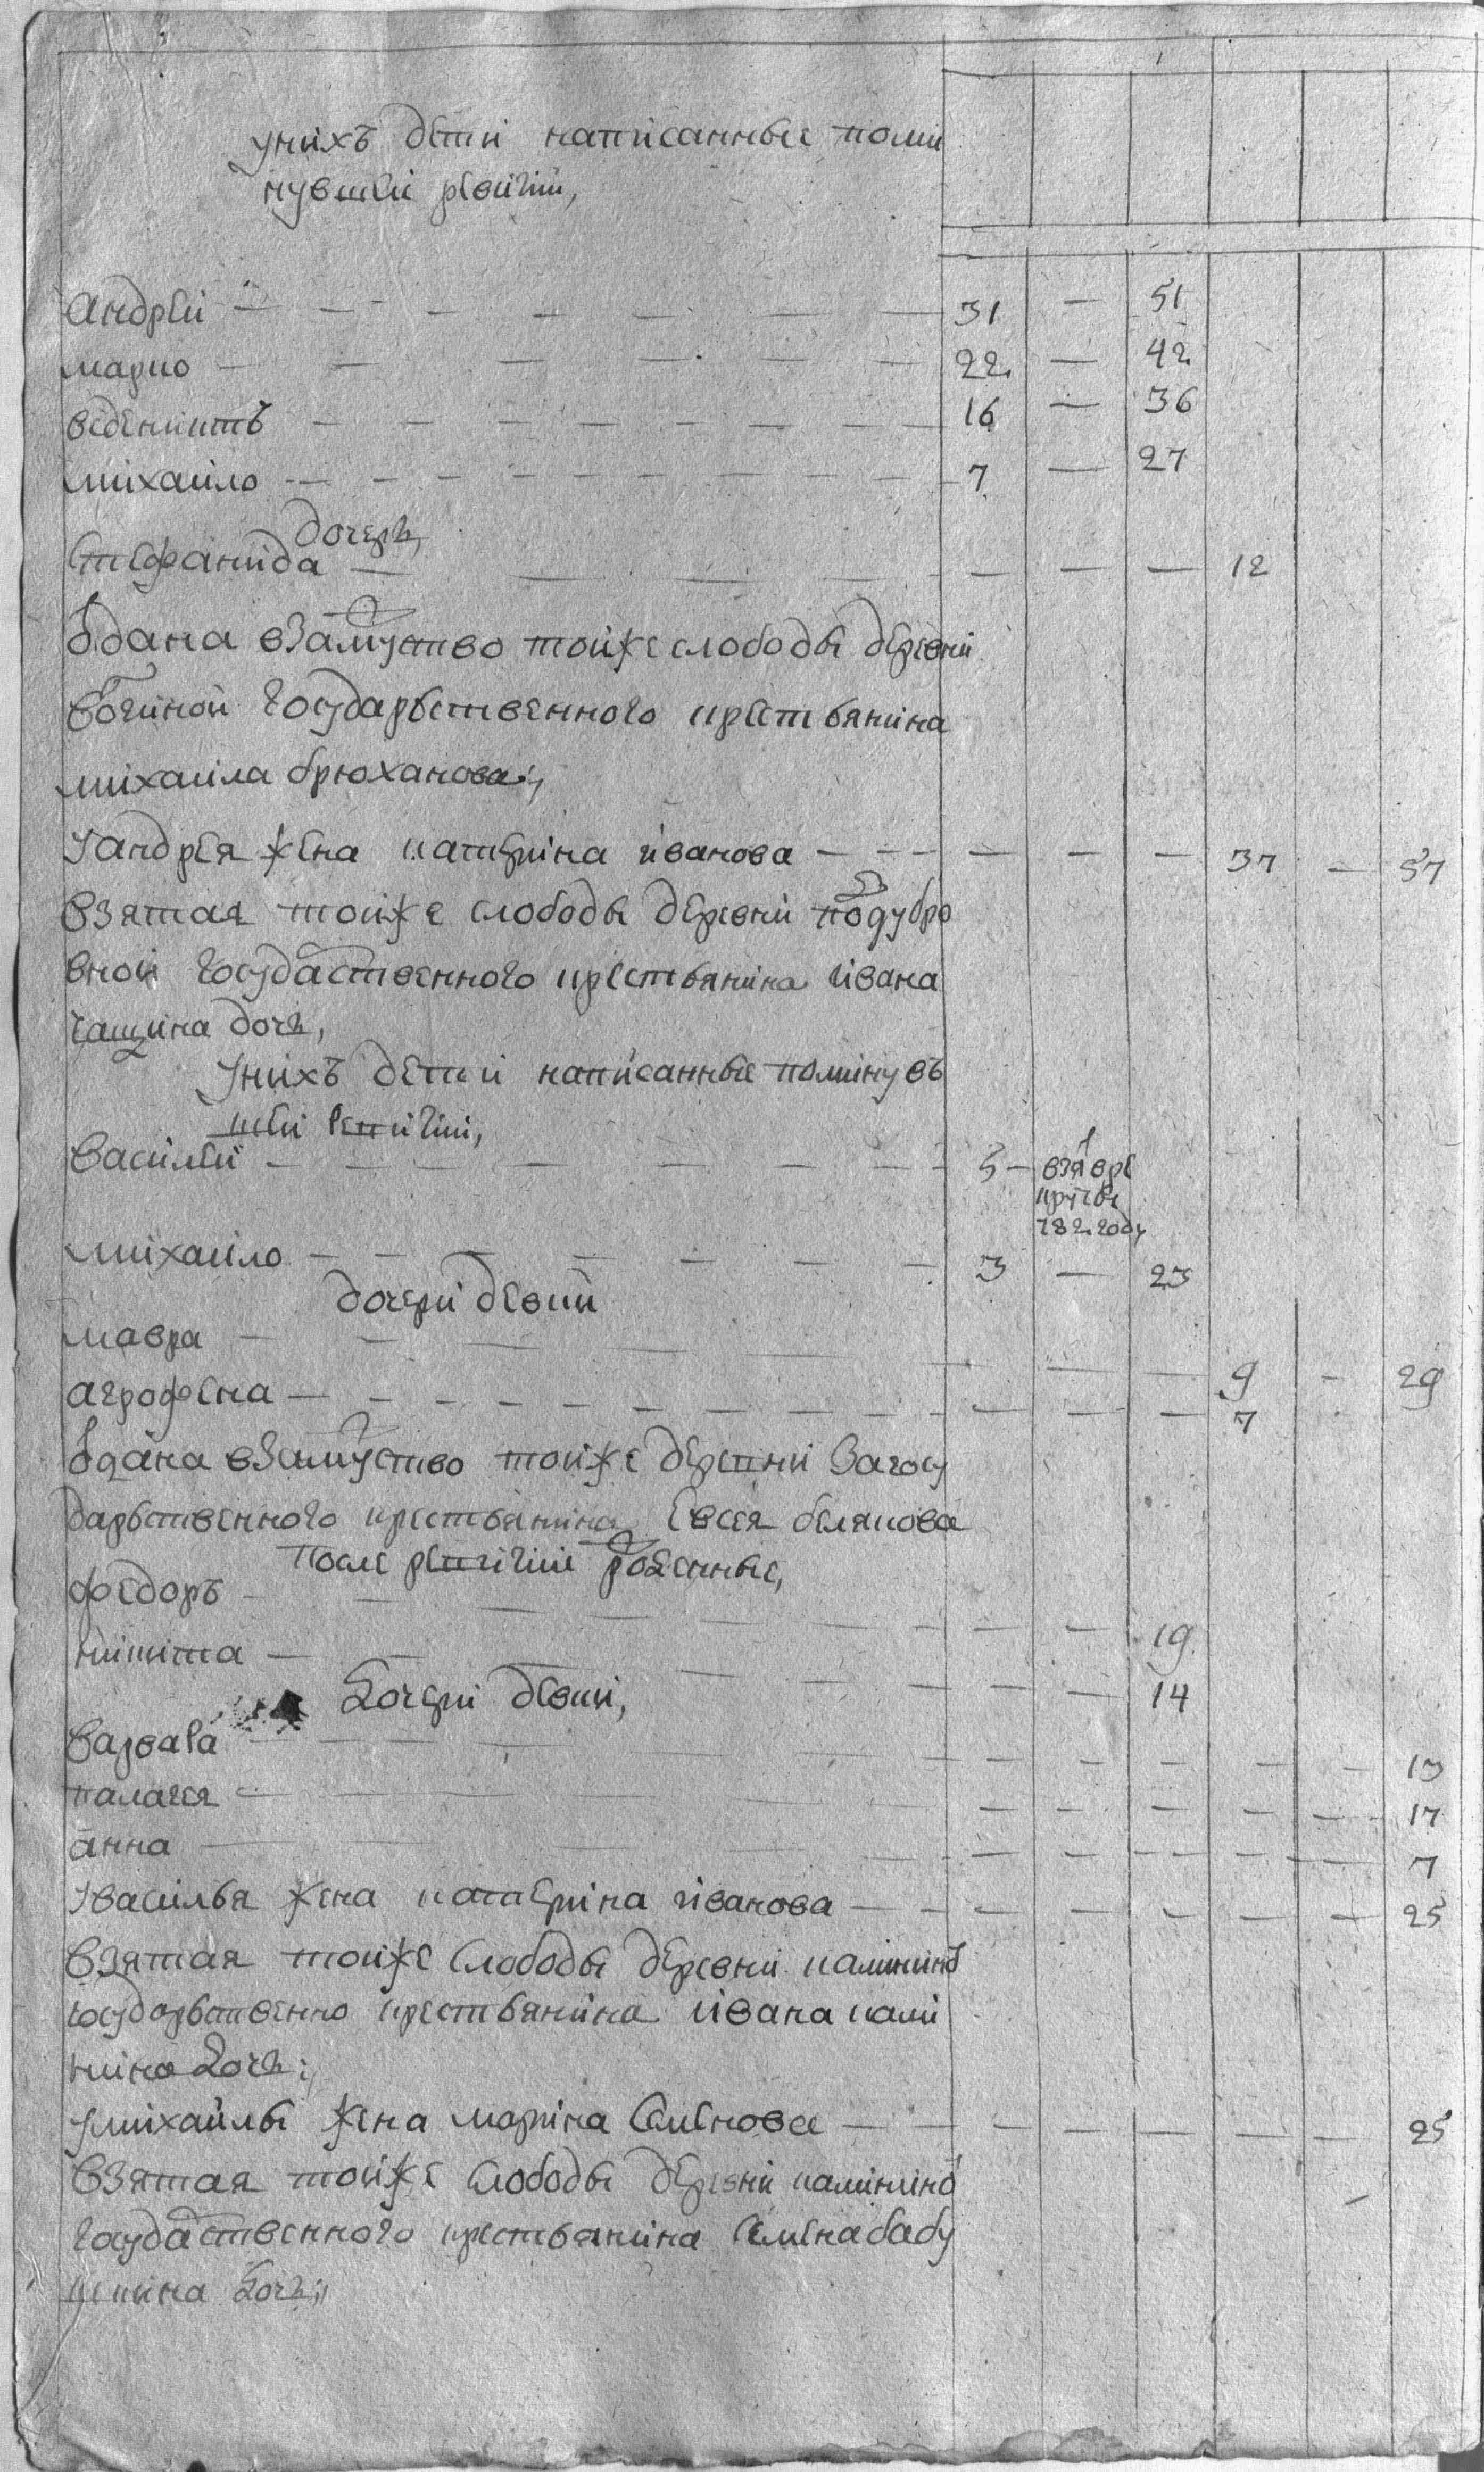 унихъ дети написанные поми
нувшеи ревизии,
андреи — — — — — — — 31 — 51
марко — — — — — — — 22 — 42
веденихтъ — — — — — — — 16 — 36
михаило — — — — — — — 7 — 27
дочерь,
стефанида — — — — — — 12
ѿдана взамуство тоиже слободы деревни
государьственного крестьянина
михаила брюханова;,
уандрея жена катерина иванова — — — — — — 37 — 57
взятая тоиже слободы деревни подубро
вной государственного крестьянина ивана
чащина дочь,
унихъ дети написанные поминувъ
шеи ревизии,
василеи — — — — — — — 5 — взя в ре
круты
782 году
михаило — — — — — — — 3 — 23
дочери девки
мавра — — — — — — 9 — 29
агрофена — — — — — — — — — — — 7
ѿдана взамуство тоиже деревни загосу
дарьственного крестьянина евсея белякова
После ревизии рожденные,
федоръ — — — — — — — 19
никита — — — — — — — 14
дочери девки,
варвара — — — — — — — — — — 13
палагея — — — — — — — — — — 17
анна — — — — — — — — — 7
увасилья жена катерина иванова — — — — — — — 25
взятая тоиже слободы деревни калинино
государьственно крестьянина ивана кали
нина дочь;
умихаилы жена марина семенова — — — — — — — 25
взятая тоиже слободы деревни калинино
государственного крестьянина семена бабу
шкина дочь;